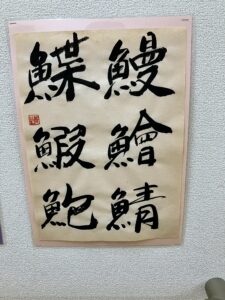 鰻鱠鯖
鰈鰕鮑